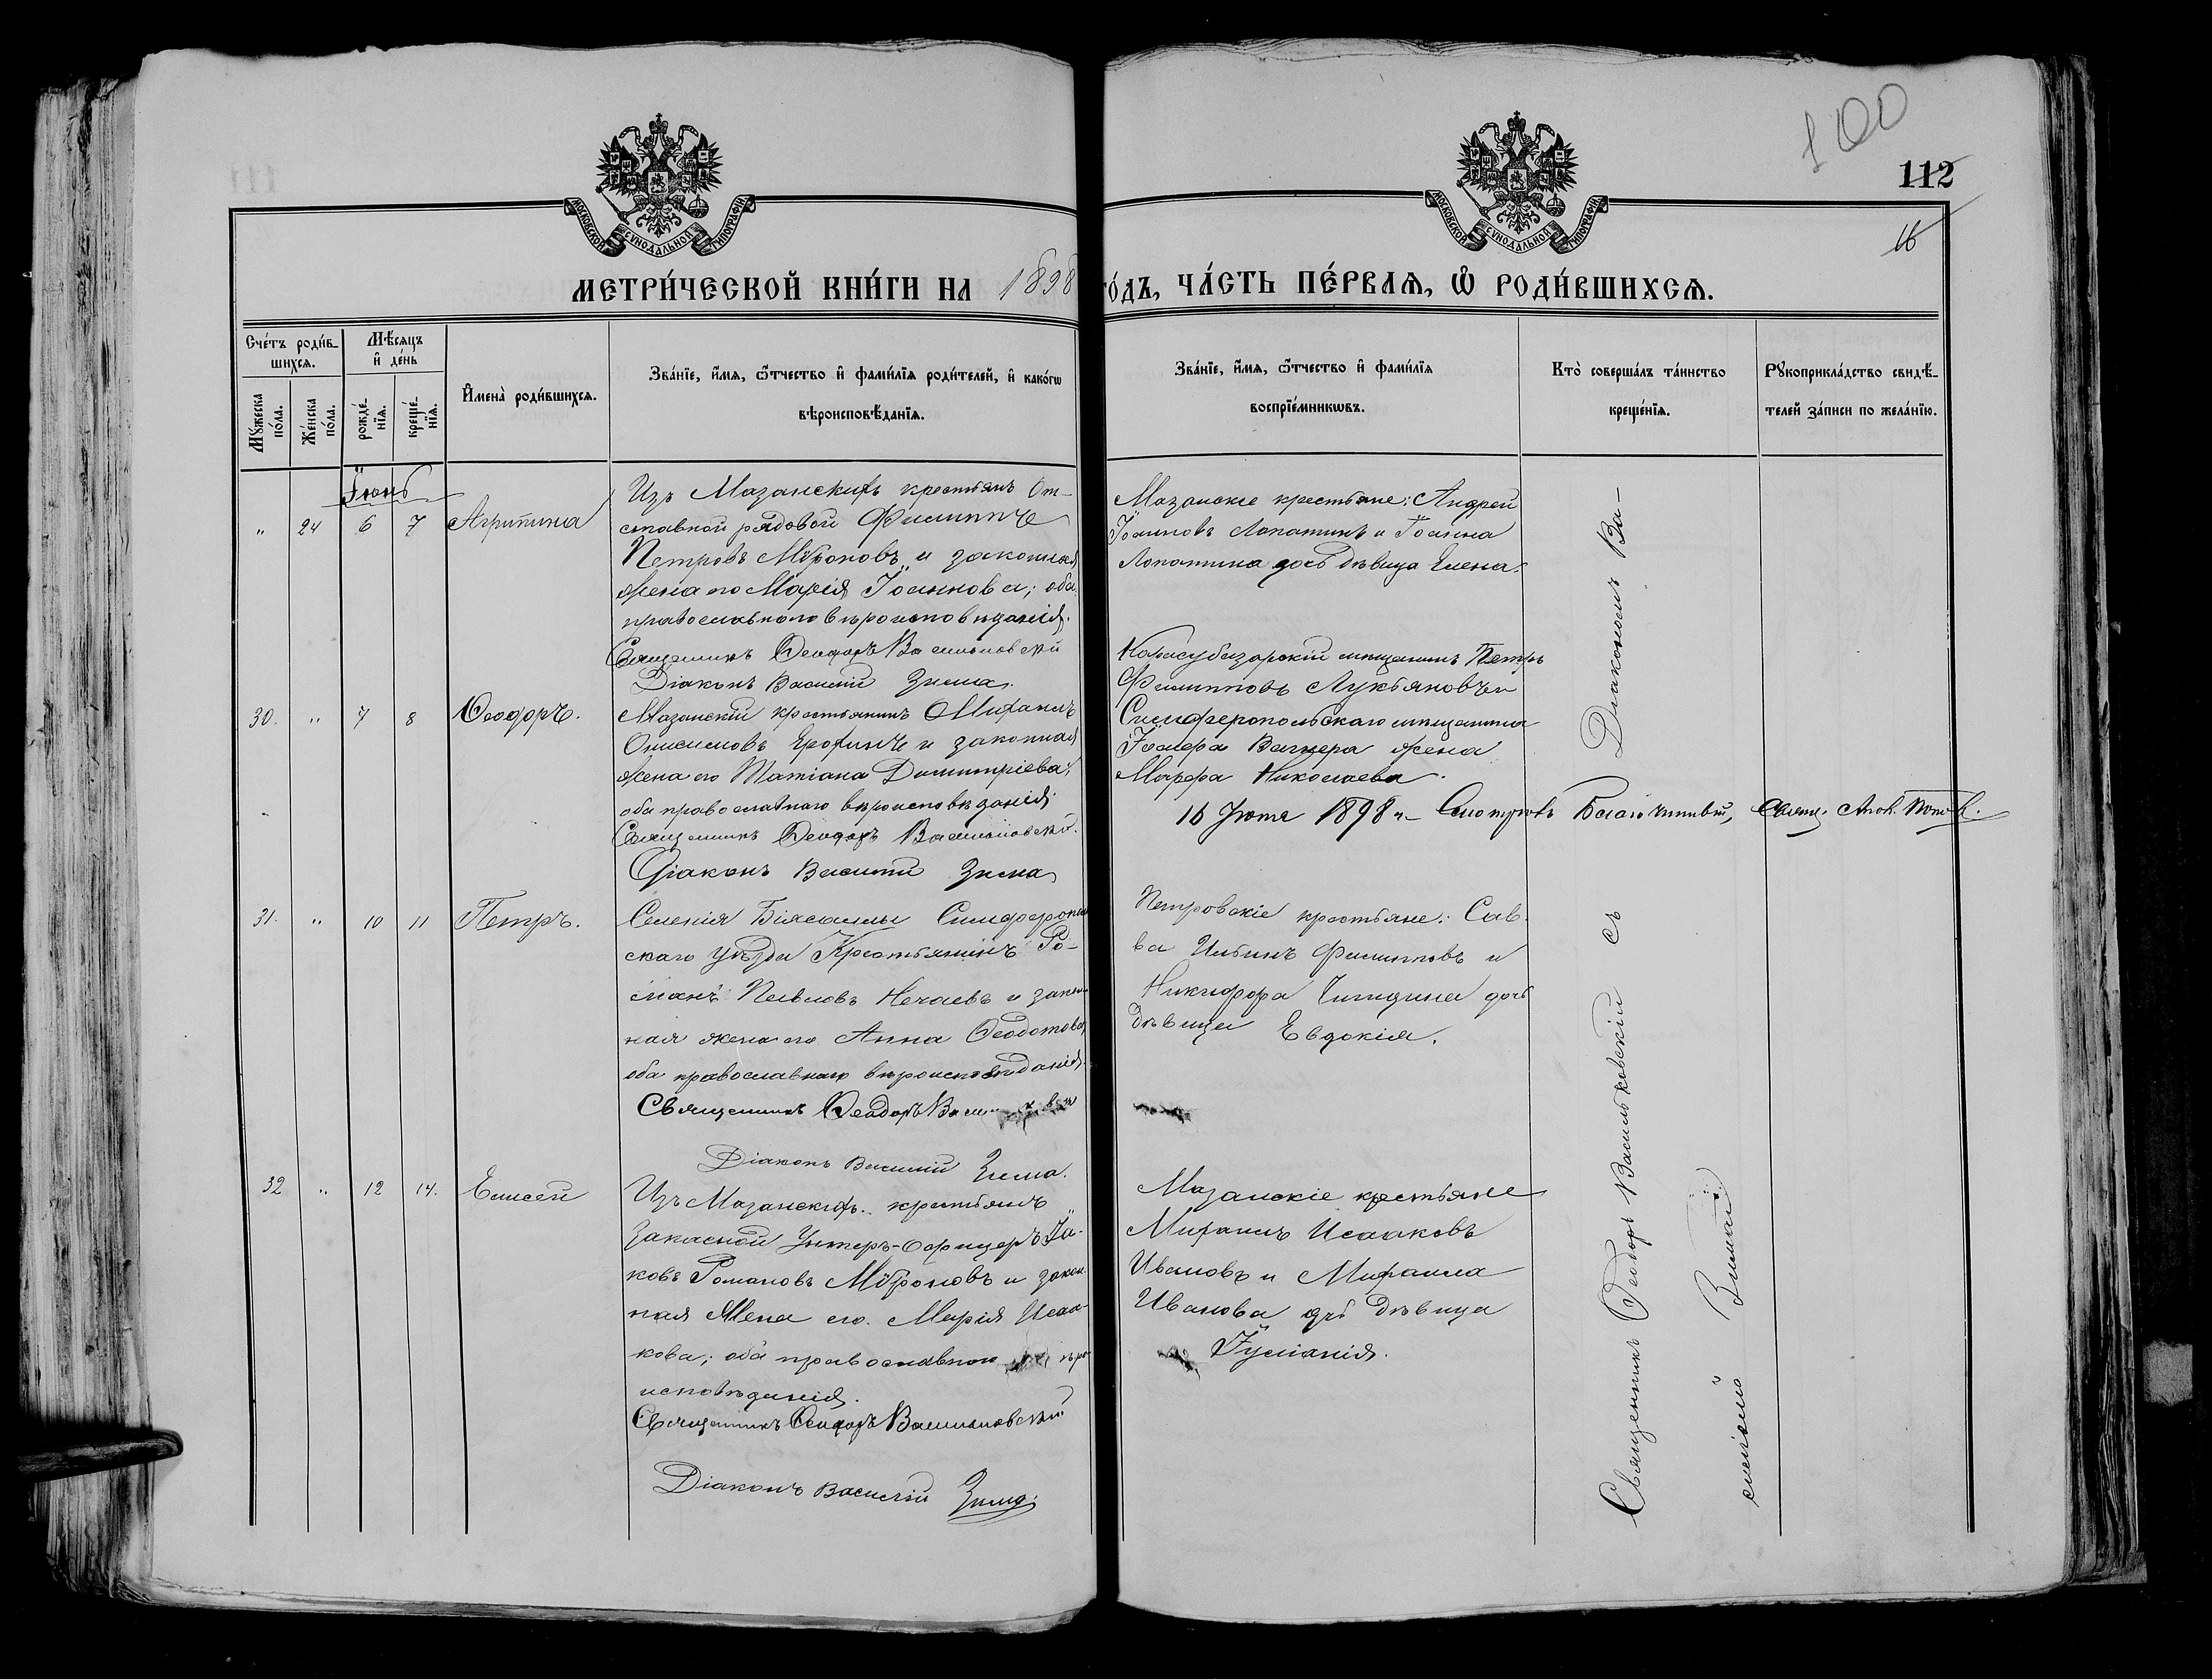 100
112
16
МОСКОВСКОЙ СѴНОДАЛЬНОЙ ТИПОГРАФІИ
МОСКОВСКОЙ СѴНОДАЛЬНОЙ ТИПОГРАФІИ
МЕТРИ́ЧЕСКОЙ КНИ́ГИ НА 1898 ГО́ДЪ, ЧА́СТЬ ПЕ́РВАѦ, Ѽ РОДИ́ВШИХСѦ.
Сче́тъ роди́в-
шихсѧ.
Мѣ́сѧцъ
и҆ де́нь
Мꙋ́жеска по́ла.
Же́нска по́ла.
рожде́-
нїѧ.
креще́-
нїѧ.
И҆мена̀ роди́вшихсѧ.
Зва́нїе, и҆́мѧ, ѻ҆́тчество и҆ фами́лїѧ роди́телей, и҆ како́гѡ
вѣроисповѣ́данїѧ.
Зва́нїе, и҆́мѧ, ѻ҆́тчество и҆ фами́лїѧ
воспрїе́мникѡвъ.
Кто̀ соверша́лъ та́инство
креще́нїѧ.
Рꙋкоприкла́дство свидѣ́-
телей за́писи по жела́нїю.
Іюнь
„ 24 6 7 Агрипина
Изъ Мазанскихъ крестьянъ От-
ставной рядовой Филиппъ
Петровъ Мѵроновъ и законная
жена его Марія Іоаннова; оба
православнаго вѣроисповѣданія.
Священникъ Ѳеодоръ Васильковскій
Діаконъ Василій Зима.
Мазанскіе крестьяне: Андрей
Іоанновъ Лопатинъ и Іоанна
Лопатина дочь дѣвица Елена.
30. „ 7 8 Ѳеодоръ.
Мазанскій крестьянинъ Михаилъ
Онисимовъ Ерохинъ и законная
жена его Татіана Димитріева;
оба православнаго вѣроисповѣданія.
Священникъ Ѳеодоръ Васильковскій.
Діаконъ Василій Зима
Карасубазарскій мѣщанинъ Петръ
Филипповъ Лукьяновъ и
Симферопольскаго мѣщанина
Іосифа Вагнера жена
Марфа Николаева.
16 Іюня 1898 г. Смотрѣлъ Благочинный, Свящ. Попов.
31. „ 10 11 Петръ.
Селенія Біясалы Симферополь
скаго уѣзда Крестьянинъ Ро-
манъ Павловъ Нечаевъ и закон
ная жена его Анна Ѳеодотова
оба православнаго вѣроисповѣданія.
Священникъ Ѳеодоръ
Діаконъ Василій Зима.
Петровскіе крестьяне: Сав-
ва Ильинъ Филипповъ и
Никифора дочь
дѣвица Евдокія.
32 „ 12 14. Елисей
Изъ Мазанскихъ крестьянъ
Запасной Унтеръ-Офицеръ Іа-
ковъ Романовъ Мѵроновъ и закон
ная Жена его Марія Исаа-
кова; оба православнаго вѣро
исповѣданія.
Священникъ Ѳеодоръ Васильковскій
Діаконъ Василій Зима.
Мазанскіе крестьяне
Михаилъ Исааковъ
Ивановъ и Михаила
Иванова дчь дѣвица
Іуліанія.
Священникъ Ѳеодоръ Васильковскій съ Діакономъ Ва-
силіемъ Зимой